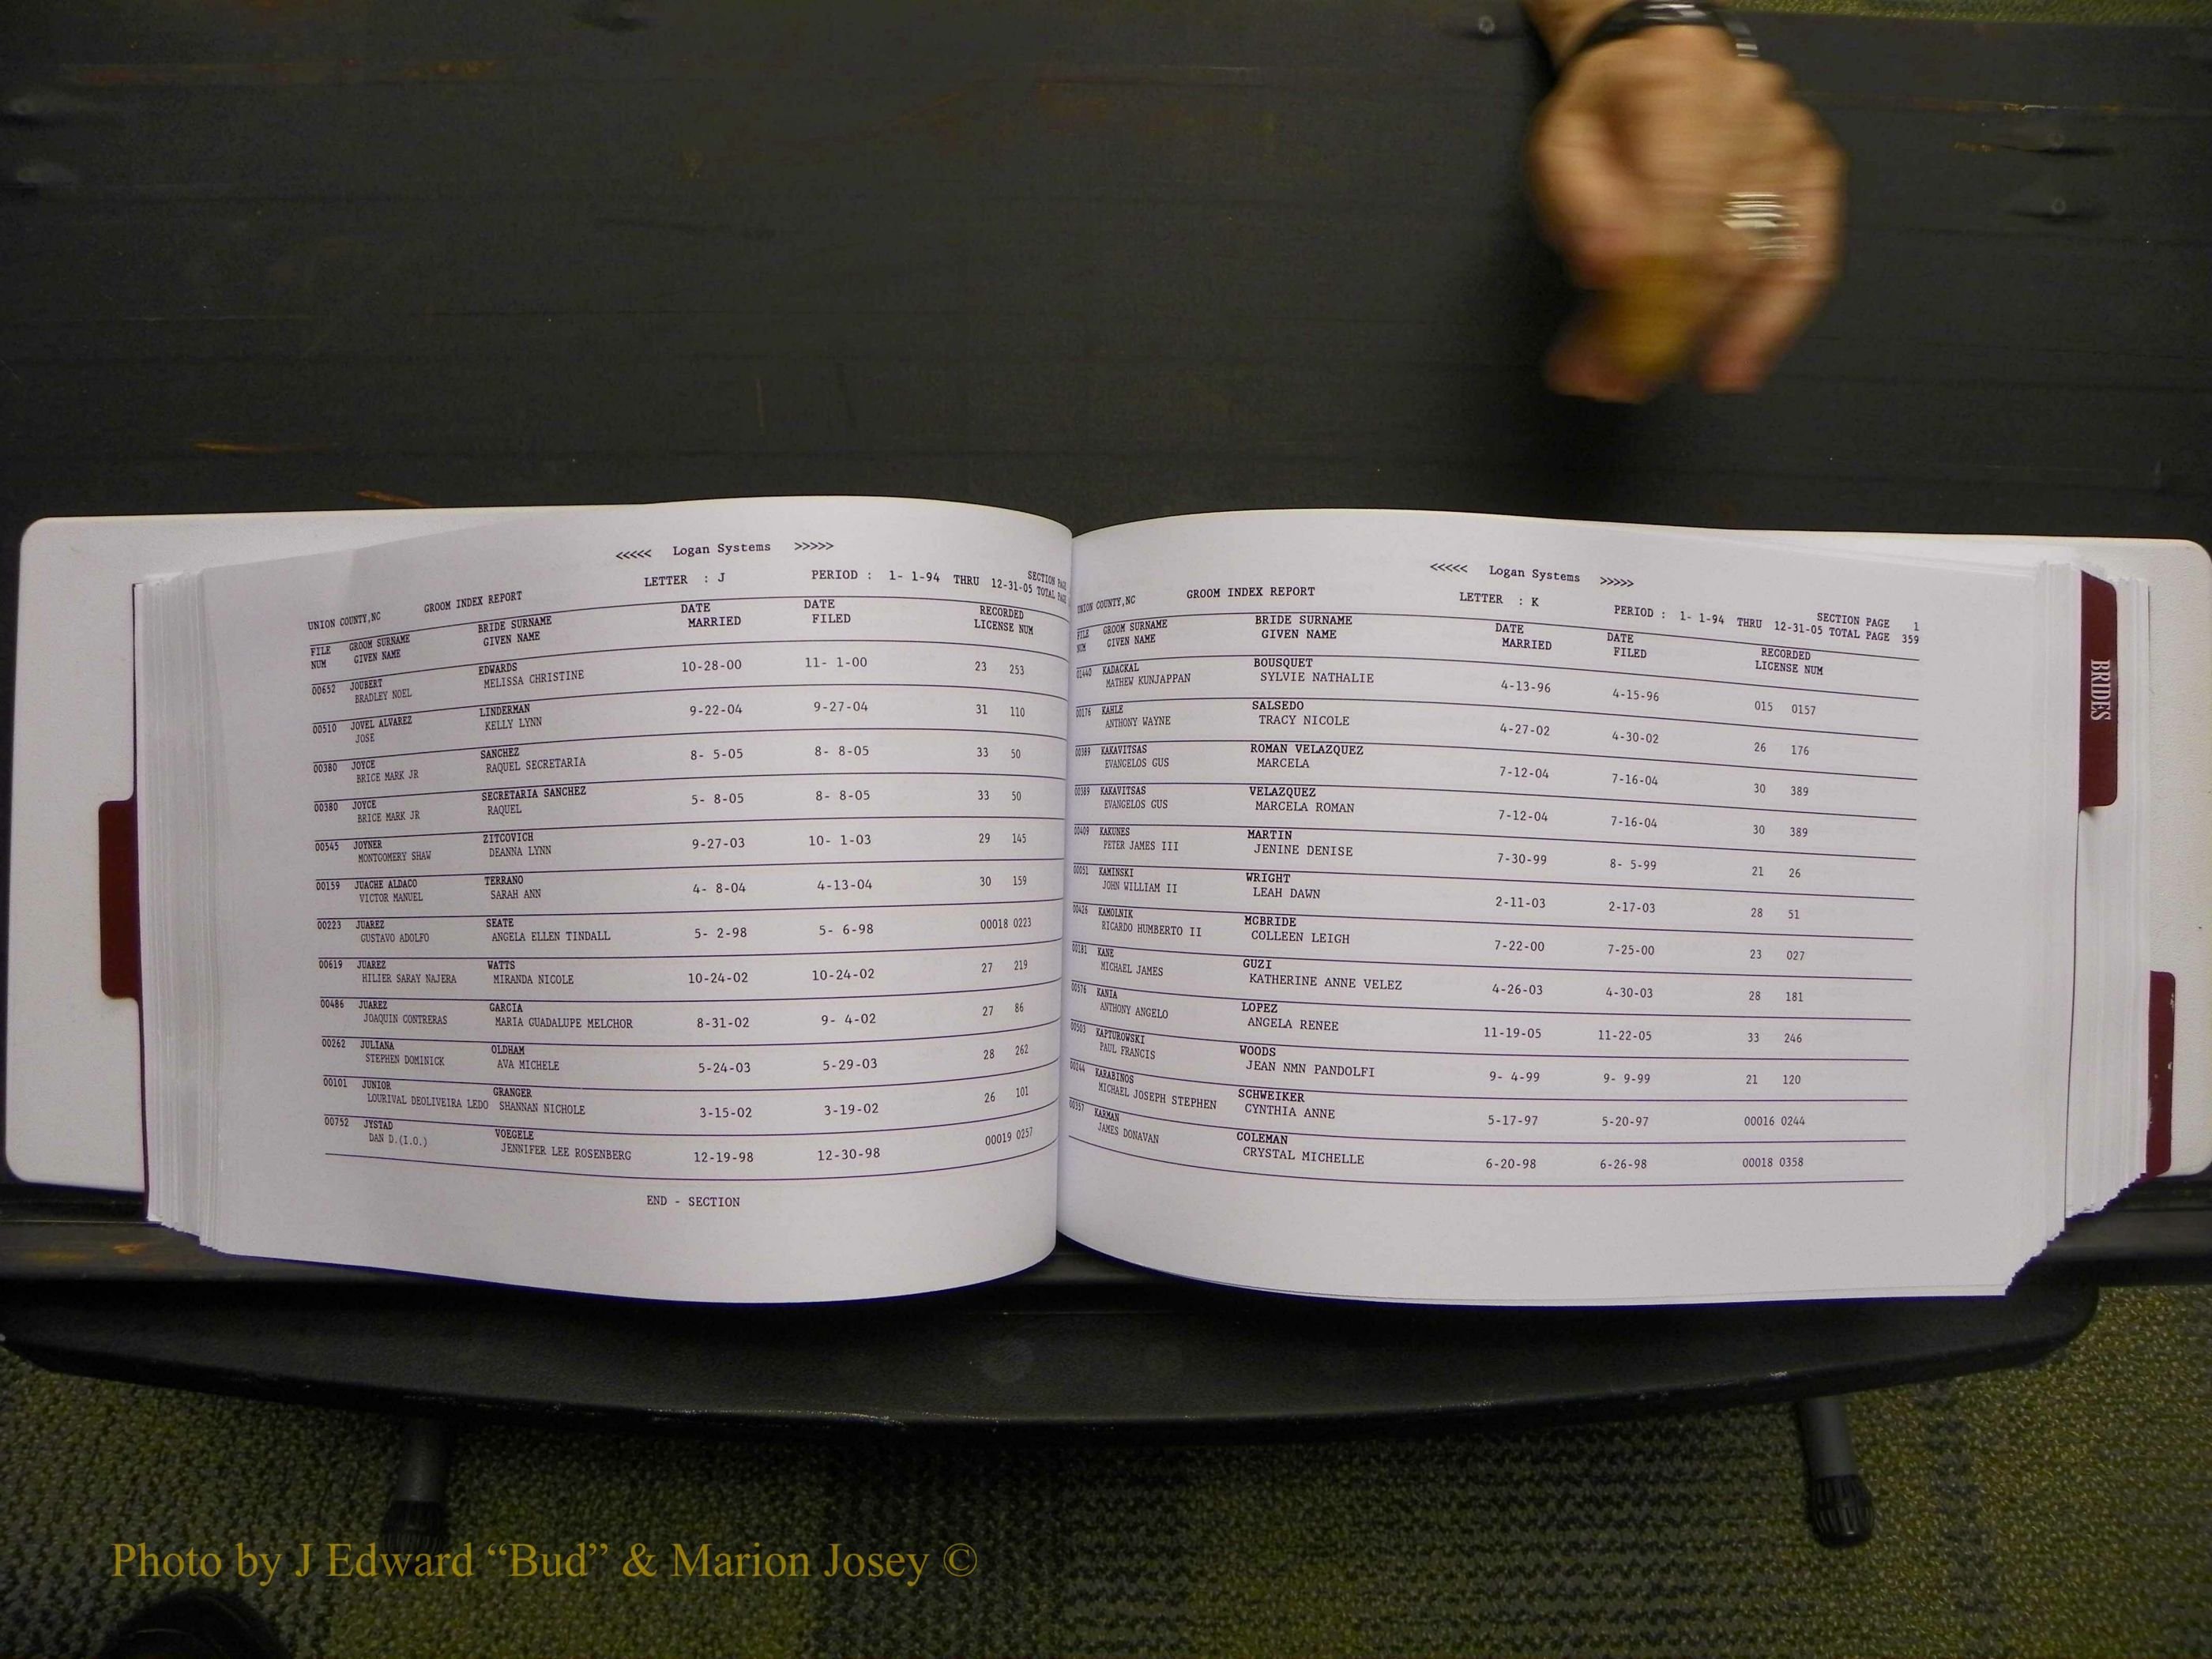 <<<<< Logan Systems >>>>>
LETTER : J PERIOD : 1- 1-94 THRU 12-31-05 SECTION PAGE
UNION COUNTY,NC GROOM INDEX REPORT TOTAL PAGE
FILE GROOM SURNAME BRIDE SURNAME DATE DATE RECORDED
NUM GIVEN NAME GIVEN NAME MARRIED FILED LICENSE NUM
00652 JOUBERT EDWARDS 10-28-00 11- 1-00 23 253
BRADLEY NOEL MELISSA CHRISTINE
00510 JOVEL ALVAREZ LINDERMAN 9-22-04 9-27-04 31 110
JOSE KELLY LYNN
00380 JOYCE SANCHEZ 8- 5-05 8- 8-05 33 50
BRICE MARK JR RAQUEL SECRETARIA
00380 JOYCE SECRETARIA SANCHEZ 5- 8-05 8- 8-05 33 50
BRICE MARK JR RAQUEL
00545 JOYNER ZITCOVICH 9-27-03 10- 1-03 29 145
MONTGOMERY SHAW DEANNA LYNN
00159 JUACHE ALDACO TERRANO 4- 8-04 4-13-04 30 159
VICTOR MANUEL SARAH ANN
00223 JUAREZ SEATE 5- 2-98 5- 6-98 00018 0223
GUSTAVO ADOLFO ANGELA ELLEN TINDALL
00619 JUAREZ WATTS 10-24-02 10-24-02 27 219
HILIER SARAY NAJERA MIRANDA NICOLE
00486 JUAREZ GARCIA 8-31-02 9- 4-02 27 86
JOAQUIN CONTRERAS MARIA GUADALUPE MELCHOR
00262 JULIANA OLDHAM 5-24-03 5-29-03 28 262
STEPHEN DOMINICK AVA MICHELE
00101 JUNIOR GRANGER 3-15-02 3-19-02 26 101
LOURIVAL DEOLIVEIRA LEDO SHANNAN NICHOLE
00752 JYSTAD VOEGELE 12-19-98 12-30-98 00019 0257
DAN D.(I.O.) JENNIFER LEE ROSENBERG
END - SECTION
<<<<< Logan Systems >>>>>
LETTER : K PERIOD : 1- 1-94 THRU 12-31-05 SECTION PAGE 1
UNION COUNTY,NC GROOM INDEX REPORT TOTAL PAGE 359
FILE GROOM SURNAME BRIDE SURNAME DATE DATE RECORDED
NUM GIVEN NAME GIVEN NAME MARRIED FILED LICENSE NUM
01440 KADACKAL BOUSQUET 4-13-96 4-15-96 015 0157
MATHEW KUNJAPPAN SYLVIE NATHALIE
00176 KAHLE SALSEDO 4-27-02 4-30-02 26 176
ANTHONY WAYNE TRACY NICOLE
00389 KAKAVITSAS ROMAN VELAZQUEZ 7-12-04 7-16-04 30 389
EVANGELOS GUS MARCELA
00389 KAKAVITSAS VELAZQUEZ 7-12-04 7-16-04 30 389
EVANGELOS GUS MARCELA ROMAN
00409 KAKUNES MARTIN 7-30-99 8- 5-99 21 26
PETER JAMES III JENINE DENISE
00051 KAMINSKI WRIGHT 2-11-03 2-17-03 28 51
JOHN WILLIAM II LEAH DAWN
00426 KAMOLNIK MCBRIDE 7-22-00 7-25-00 23 027
RICARDO HUMBERTO II COLLEEN LEIGH
00181 KANE GUZI 4-26-03 4-30-03 28 181
MICHAEL JAMES KATHERINE ANNE VELEZ
00576 KANIA LOPEZ 11-19-05 11-22-05 33 246
ANTHONY ANGELO ANGELA RENEE
00503 KAPTUROWSKI WOODS 9- 4-99 9- 9-99 21 120
PAUL FRANCIS JEAN NMN PANDOLFI
00244 KARABINOS SCHWEIKER 5-17-97 5-20-97 00016 0244
MICHAEL JOSEPH STEPHEN CYNTHIA ANNE
00357 KARMAN COLEMAN 6-20-98 6-26-98 00018 0358
JAMES DONAVAN CRYSTAL MICHELLE
BRIDES
Photo by J Edward “Bud” & Marion Josey ©